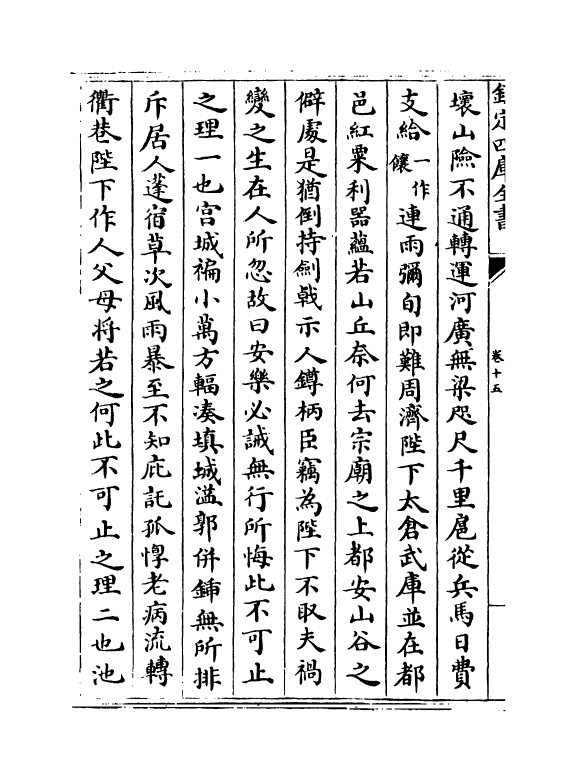 欽定四庫全書
卷十五
壞山險不通轉運河廣無梁咫尺千里扈從兵馬日費
支給一作饟連雨彌旬即難周濟陛下太倉武庫並在都
邑紅粟利器蘊若山丘奈何去宗廟之上都安山谷之
僻處是猶倒持劍㦸示人鐏柄臣竊為陛下不取夫禍
變之生在人所忽故曰安樂必誡無行所悔此不可止
之理一也宮城褊小萬方輻湊填城溢郭併鍤無所排
斥居人蓬宿草次風雨暴至不知庇託孤惸老病流轉
衢巷陛下作人父母將若之何此不可止之理二也池